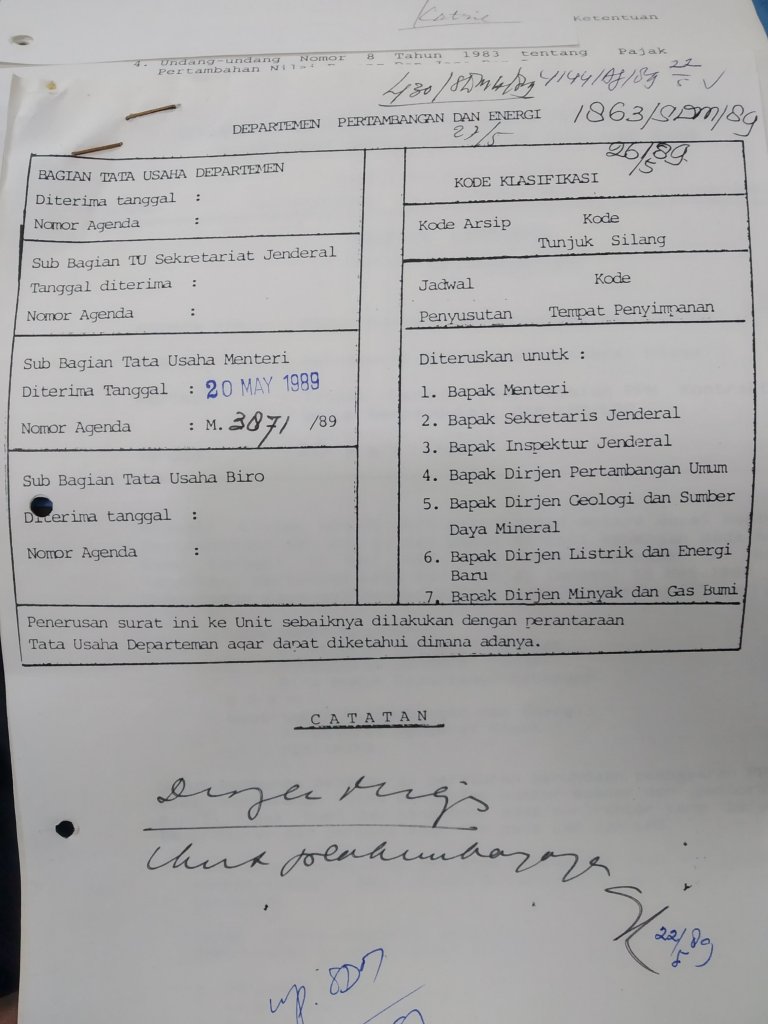 Ketentuan
4. Undang-undang Nomor 8 Tahun 1983 tentang Pajak
Pertambahan
430/SDM4/89 4144/AJ/89 22/5
DEPARTEMEN PERTAMBANGAN DAN ENERGI
22/5
1863/SDM/89
26/89
5
BAGIAN TATA USAHA DEPARTEMEN
Diterima tanggal :
Nomor Agenda :
Sub Bagian TU Sekretariat Jenderal
Tanggal diterima :
Nomor Agenda :
Sub Bagian Tata Usaha Menteri
Diterima Tanggal : 20 MAY 1989
Nomor Agenda : M. 3871 /89
Sub Bagian Tata Usaha Biro
Diterima tanggal :
Nomor Agenda :
KODE KLASIFIKASI
Kode Arsip Kode
Tunjuk Silang
Jadwal Kode
Penyusutan Tempat Penyimpanan
Diteruskan unutk :
1. Bapak Menteri
2. Bapak Sekretaris Jenderal
3. Bapak Inspektur Jenderal
4. Bapak Dirjen Pertambangan Umum
5. Bapak Dirjen Geologi dan Sumber
Daya Mineral
6. Bapak Dirjen Listrik dan Energi
Baru
7. Bapak Dirjen Minyak dan Gas Bumi
Penerusan surat ini ke Unit sebaiknya dilakukan dengan perantaraan
Tata Usaha Departeman agar dapat diketahui dimana adanya.
CATATAN
Dirjen Migas
22/89
5
up. SDM